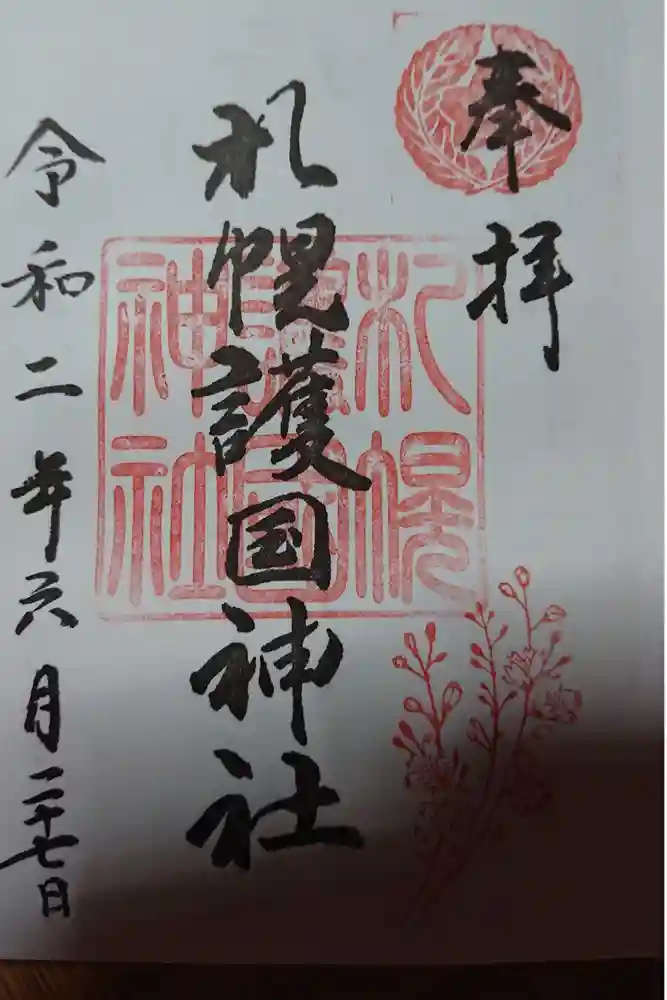 奉拝
札幌護国神社
札幌
護国
神社
令和二年六月二十七日